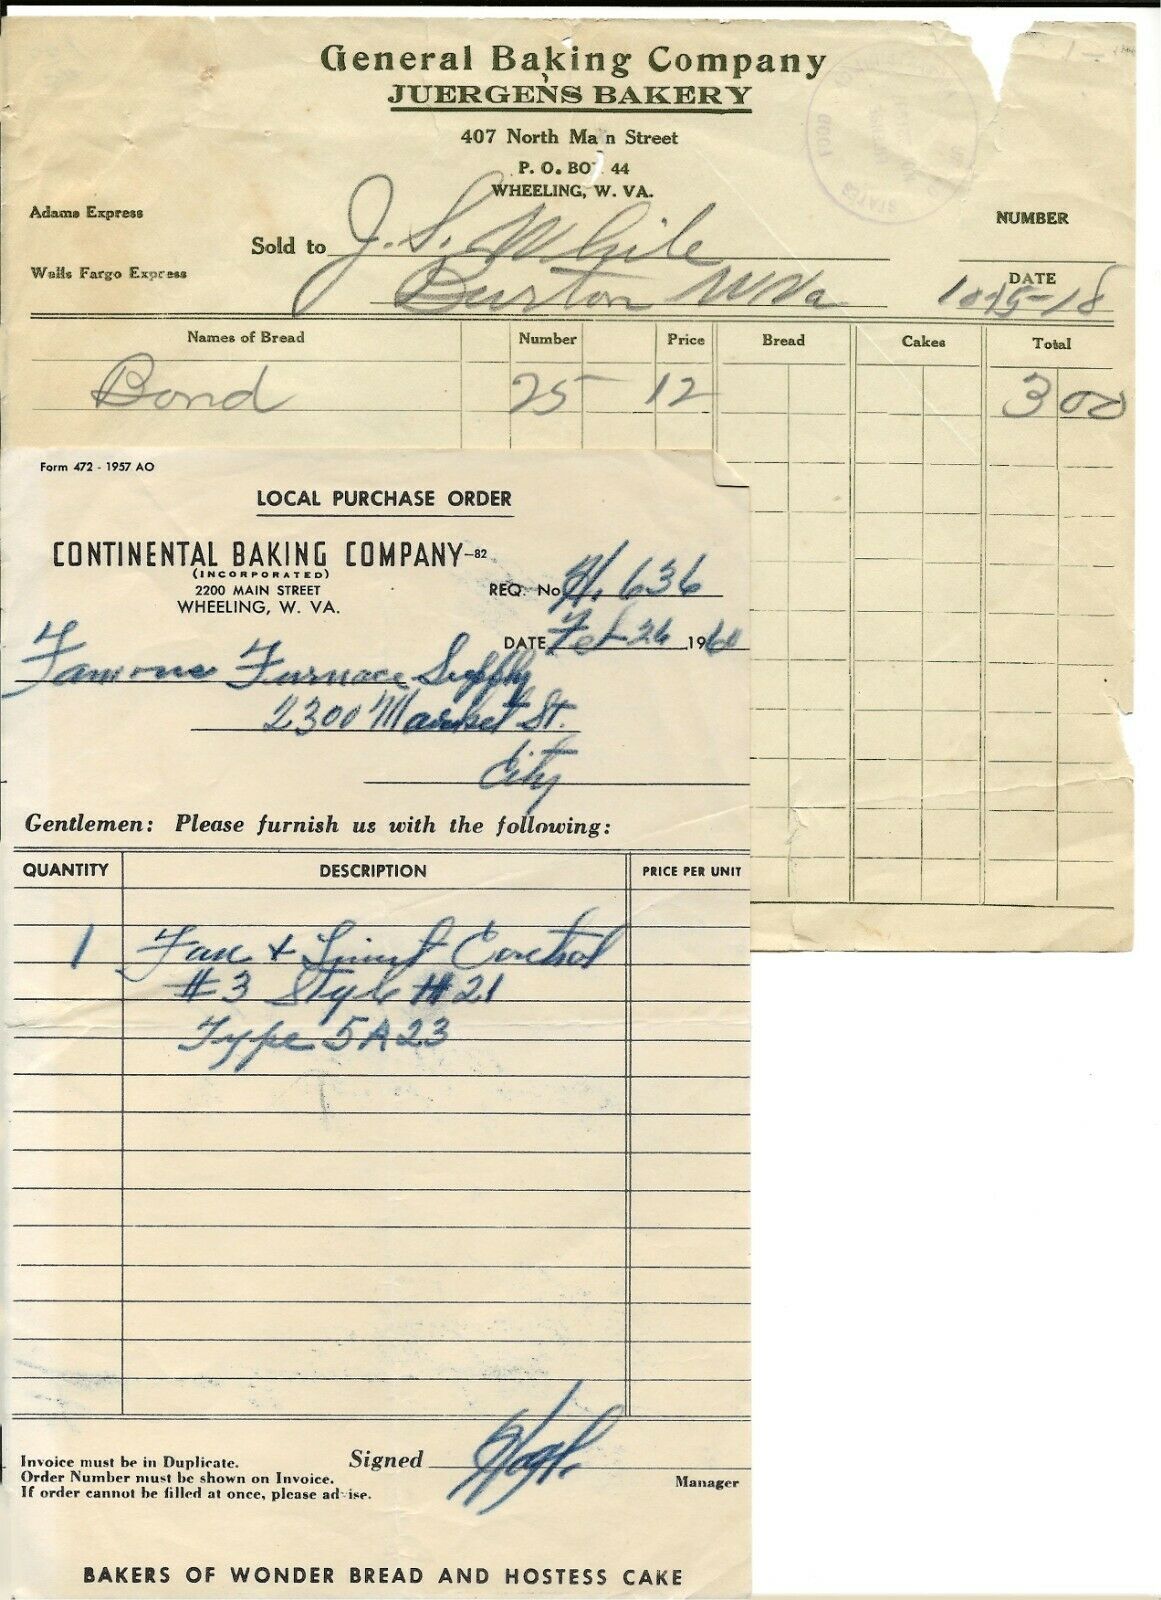 General Baking Company
JUERGENS BAKERY
407 North Ma n Street
P. O. BO 44
WHEELING, W. VA.
Adams Express
NUMBER
Sold to J. S. White
Wells Fargo Express
Burton W Va
DATE
10-15-18
Names of Bread Number Price Bread Cakes Total
Bond 25 12 3 00
Form 472 - 1957 AO
LOCAL PURCHASE ORDER
CONTINENTAL BAKING COMPANY-82
(INCORPORATED)
2200 MAIN STREET
WHEELING, W. VA.
REQ. No. H. 636
DATE Feb 26 1960
Famous Furnace Supply
2300 Market St.
City
Gentlemen: Please furnish us with the following:
QUANTITY DESCRIPTION PRICE PER UNIT
1 Fan + Limit Control
#3 Style #21
Type 5A23
Invoice must be in Duplicate.
Order Number must be shown on Invoice.
If order cannot be filled at once, please advise.
Signed
Manager
BAKERS OF WONDER BREAD AND HOSTESS CAKE